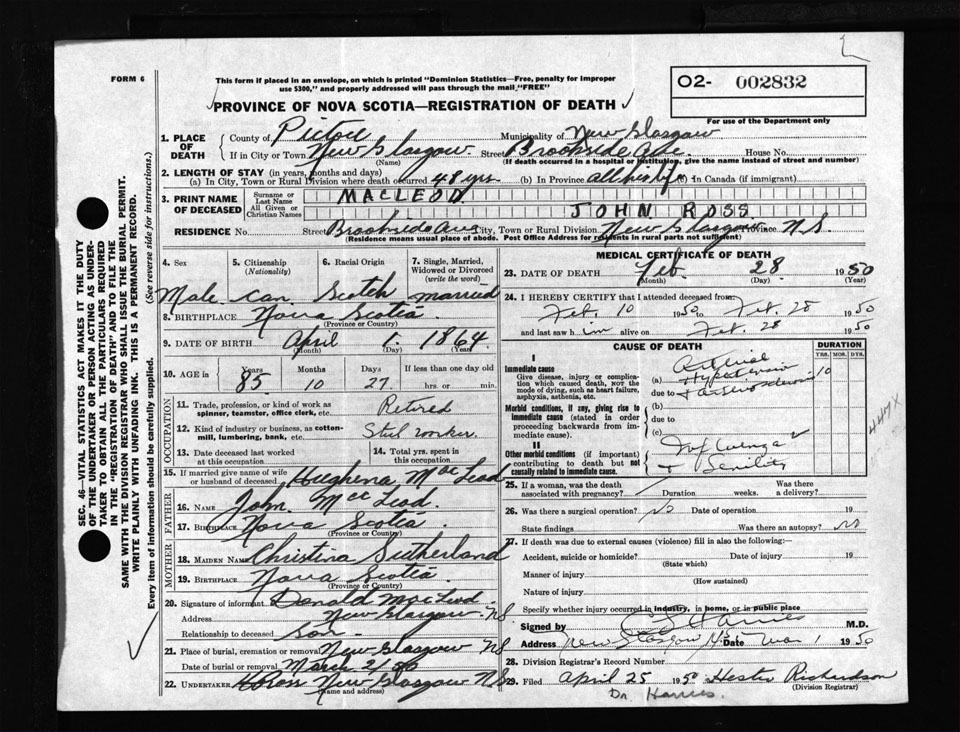 FORM 6
This form if placed in an envelope, on which is printed "Dominion Statistics—Free, penalty for improper
use $300," and properly addressed will pass through the mail "FREE"
O2- 002832
For use of the Department only
PROVINCE OF NOVA SCOTIA—REGISTRATION OF DEATH
1. PLACE OF DEATH County of Pictou Municipality of New Glasgow
If in City or Town New Glasgow Street Brookside Ave. House No.
(Name) (If death occurred in a hospital or institution, give the name instead of street and number)
2. LENGTH OF STAY (in years, months and days)
(a) In City, Town or Rural Division where death occurred 48 yrs (b) In Province all his life (c) in Canada (if immigrant)
3. PRINT NAME OF DECEASED Surname or Last Name MACLEOD
All Given or Christian Names JOHN ROSS
RESIDENCE No. Street Brookside Ave City, Town or Rural Division New Glasgow Province N.S.
(Residence means usual place of abode. Post Office Address for residents in rural parts not sufficient)
4. Sex 5. Citizenship (Nationality) 6. Racial Origin 7. Single, Married, Widowed or Divorced (write the word)
Male Can. Scotch married
8. BIRTHPLACE Nova Scotia
(Province or Country)
9. DATE OF BIRTH April 1. 1864
(Month) (Day) (Year)
10. AGE in Years Months Days If less than one day
85 10 27 hrs. or min.
OCCUPATION
11. Trade, profession, or kind of work as spinner, teamster, office clerk, etc. Retired
12. Kind of industry or business, as cotton-mill, lumbering, bank, etc. Steel worker
13. Date deceased last worked at this occupation 14. Total yrs. spent in this occupation
15. If married give name of wife or husband of deceased Hughena MacLeod
FATHER
16. NAME John MacLeod
17. BIRTHPLACE Nova Scotia
(Province or Country)
MOTHER
18. MAIDEN NAME Christina Sutherland
19. BIRTHPLACE Nova Scotia
(Province or Country)
20. Signature of informant Donald MacLeod
Address New Glasgow NS
Relationship to deceased Son
21. Place of burial, cremation or removal New Glasgow NS
Date of burial or removal March 2/50
22. UNDERTAKER Ross New Glasgow N.S.
(Name and address)
MEDICAL CERTIFICATE OF DEATH
23. DATE OF DEATH Feb. 28 1950
(Month) (Day) (Year)
24. I HEREBY CERTIFY that I attended deceased from:
Feb. 10 1950 to Feb. 28 1950
and last saw him alive on Feb. 28 1950
CAUSE OF DEATH DURATION
YRS. MOS. DYS.
I
Immediate cause
Give disease, injury or complication which caused death, NOT the mode of dying, such as heart failure, asphyxia, asthenia, etc.
(a) Arterial Hypertension 10
due to
Morbid conditions, if any, giving rise to immediate cause (stated in order proceeding backwards from immediate cause).
(b)
due to
(c)
II
Other morbid conditions (if important) contributing to death but not causally related to immediate cause.
Influenza
+ Senility
447X
25. If a woman, was the death associated with pregnancy? Duration weeks. Was there a delivery?
26. Was there a surgical operation? No Date of operation 19
State findings Was there an autopsy? No
27. If death was due to external causes (violence) fill in also the following:
Accident, suicide or homicide? Date of injury 19
(State which)
Manner of injury
(How sustained)
Nature of injury
Specify whether injury occurred in industry, in home, or in public place
Signed by Harries M.D.
Address New Glasgow N.S. Date Mar 1 1950
28. Division Registrar's Record Number
29. Filed April 25 1950 Hester Richardson
(Division Registrar)
Dr. Harries.
SEC. 46—VITAL STATISTICS ACT MAKES IT THE DUTY
OF THE UNDERTAKER OR PERSON ACTING AS UNDERTAKER TO OBTAIN ALL THE PARTICULARS REQUIRED
IN THE "REGISTRATION OF DEATH" AND TO FILE THE
SAME WITH THE DIVISION REGISTRAR WHO SHALL ISSUE THE BURIAL PERMIT.
WRITE PLAINLY WITH UNFADING INK. THIS IS A PERMANENT RECORD.
Every item of information should be carefully supplied. (See reverse side for instructions.)